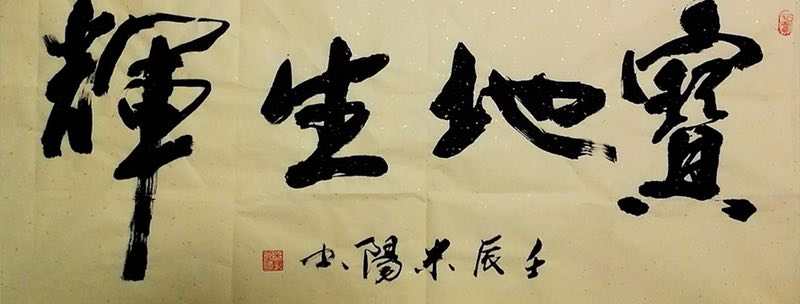 寶地生輝
壬辰朱陽书